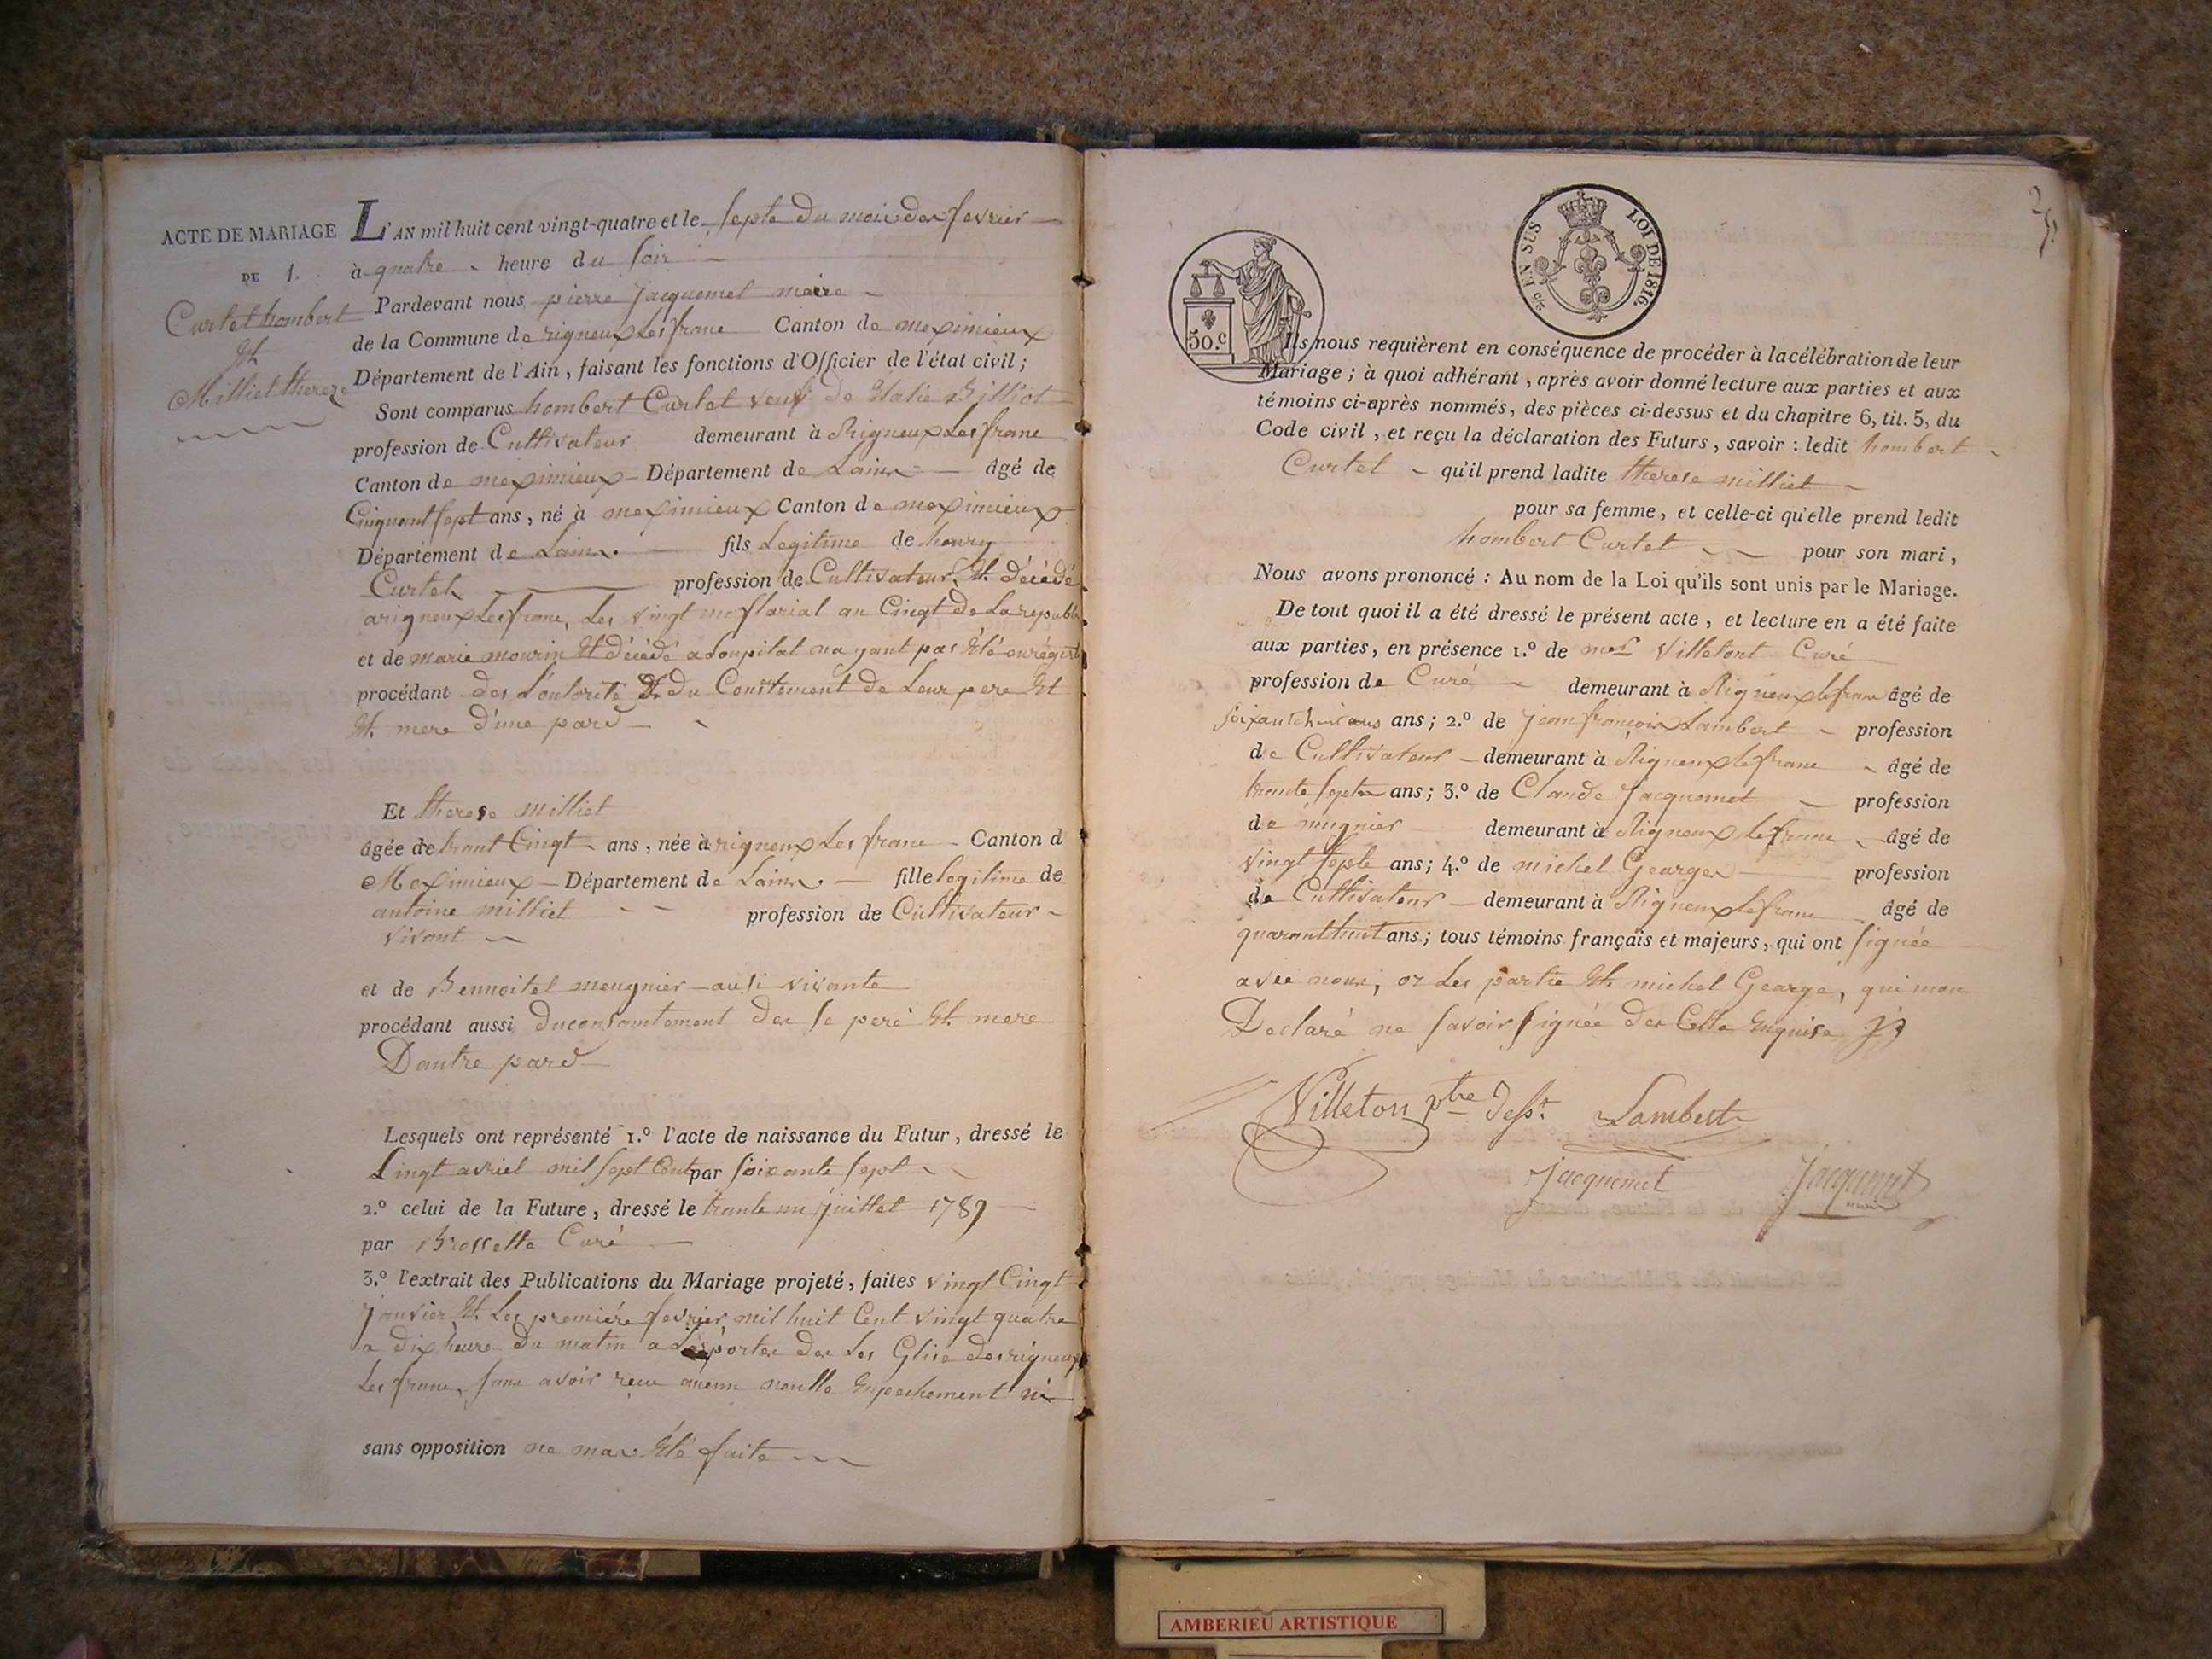 ACTE DE MARIAGE
DE 1.
Curtet hombert
Et
Milliet thereze
L'AN mil huit cent vingt-quatre et le septe du mois de fevrier
à quatre heure du soir
Pardevant nous pierre Jacquemet maire
de la Commune de rigneux Les franc Canton de meximieux
Département de l'Ain, faisant les fonctions d'Officier de l'état civil;
Sont comparus hombert Curtet veuf de Billiot
profession de Cultivateur demeurant à Rigneux Les franc
Canton de meximieux Département de Lain âgé de
Cinquant sept ans, né à meximieux Canton de meximieux
Département de Lain fils Legitime de henry
Curtet profession de Cultivateur Et décédé
a rigneux Les franc, Les vingt un flarial an Cingt de La republi
et de marie mourin Et décédé a Loupital nayant pas Été enrégist
procédant des L'autorité Et du de Leur pere Et
Et mere d'une pard
Et therese milliet
âgée de trant Cingt ans, née à rigneux Les franc Canton d
Meximieux Département de Lain fille legitime de
antoine milliet profession de Cultivateur
vivant
et de Bennoitel meugnier ausi vivante
procédant aussi du consantement de se pere Et mere
Dautre pard
Lesquels ont représenté 1.º l'acte de naissance du Futur, dressé le
vingt avriel mil sept Cent par soixante sept
2.º celui de la Future, dressé le trante un Juillet 1789
par Brossette Curé
3.º l'extrait des Publications du Mariage projeté, faites vingt Cingt
Janvier Et Les premiére fevrier mil huit Cent vingt quatre
a dix heure du matin a Les porte de Les Glise des rigneux
Les franc, sans avoir reçu aucun noulle Enpechement ni
sans opposition ne Été faite
50.c
EN SUS LOI DE 1816.
Ils nous requièrent en conséquence de procéder à la célébration de leur
Mariage; à quoi adhérant, après avoir donné lecture aux parties et aux
témoins ci-après nommés, des pièces ci-dessus et du chapitre 6, tit. 5, du
Code civil, et reçu la déclaration des Futurs, savoir: ledit hombert
Curtet qu'il prend ladite therese milliet
pour sa femme, et celle-ci qu'elle prend ledit
hombert Curtet pour son mari,
Nous avons prononcé: Au nom de la Loi qu'ils sont unis par le Mariage.
De tout quoi il a été dressé le présent acte, et lecture en a été faite
aux parties, en présence 1.º de Villetont Curé
profession de Curé demeurant à Rigneux le franc âgé de
ans; 2.º de Jean françois Lambert profession
de Cultivateur demeurant à Rigneux le franc âgé de
trante septe ans; 3.º de Claude Jacquemet profession
de mugnier demeurant à Rigneux le franc âgé de
vingt septe ans; 4.º de michel George profession
de Cultivateur demeurant à Rigneux le franc âgé de
quarant huit ans; tous témoins français et majeurs, qui ont signée
avec nous, or Les partie Et michel George, qui mon
Declaré ne savoir signée de Celle Enquise
Villeton ptre dess.t Lambert
Jacquemet Jacquemet
maire
AMBERIEU ARTISTIQUE